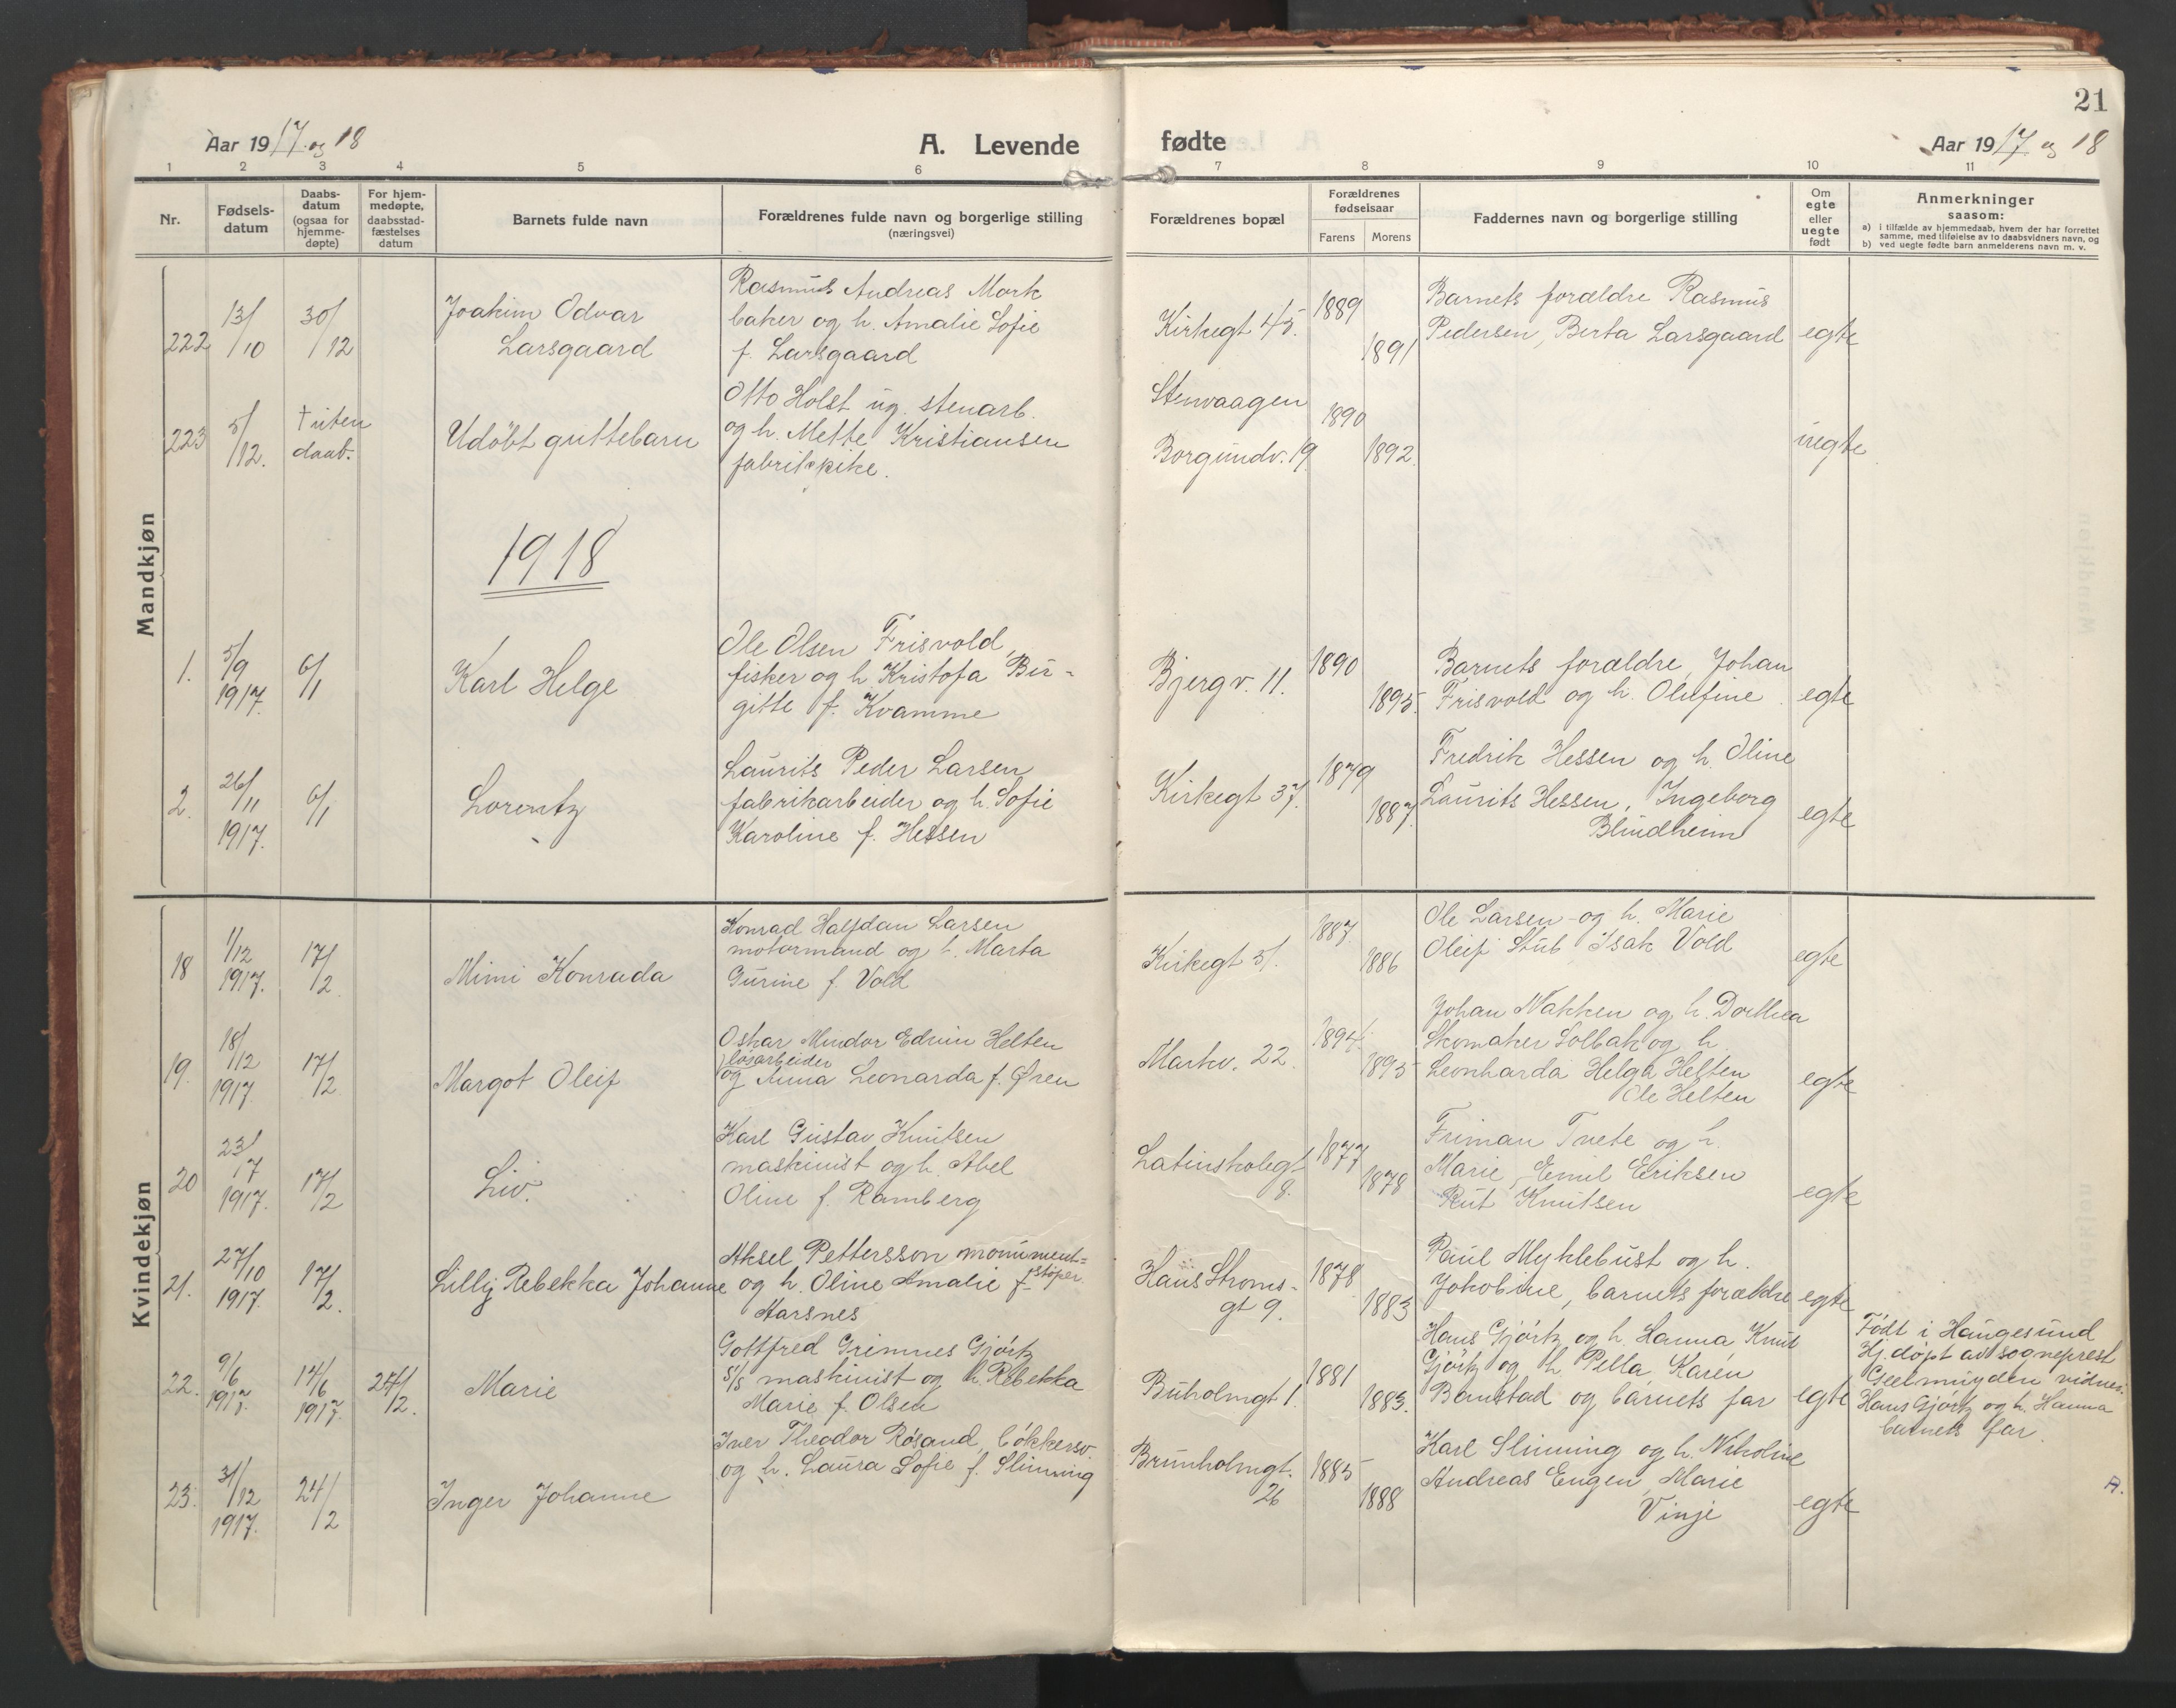 21
Aar 1917 og 18
A. Levende fødte
Aar 1917 og 18
1 2 3 4 5 6 7 8 9 10 11
Nr.
Fødsels-
datum
Daabs-
datum
(ogsaa for
hjemme-
døpte)
For hjem-
medøpte,
daabsstad-
fæstelses
datum
Barnets fulde navn
Forældrenes fulde navn og borgerlige stilling
(næringsvei)
Forældrenes bopæl
Forældrenes
fødselsaar
Farens Morens
Faddernes navn og borgerlige stilling
Om
egte
eller
uegte
født
Anmerkninger
saasom:
a) i tilfælde av hjemmedaab, hvem der har forrettet
samme, med tilføielse av to daabsvidners navn, og
b) ved uegte fødte barn anmelderens navn m. v.
Mandkjøn
222
13/10
30/12
Joakim Odvar
Larsgaard
Rasmus Andreas Mork
baker og h. Amalie Sofie
f. Larsgaard
Kirkegt 45.
1889
1891
Barnets forældre Rasmus
Pedersen, Berta Larsgaard
egte
223
5/12.
† uten
daab.
Udöbt guttebarn
Otto Holst ug. stenarb.
og h. Mette Kristiansen
fabrikpike.
Stenvaagen
Borgundv. 19
1890
1892.
uegte
1918
1.
5/9
1917.
6/1
Karl Helge
Ole Olsen Frisvold,
fisker og h Kristofa Bir-
gitte f. Kvamme
Bjergv. 11.
1890
1895.
Barnets forældre, Johan
Frisvold og h. Olufine
egte
2.
26/11
1917.
6/1
Lorentz
Laurits Peder Larsen
fabrikarbeider og h. Sofie
Karoline f. Hessen
Kirkegt 37.
1879
1887.
Fredrik Hessen og h. Oline
Laurits Hessen, Ingeborg
Blindheim
egte
Kvindekjøn
18
1/12
1917.
17/2
Mimi Konrada
Konrad Halfdan Larsen
motormand og h. Marta
Gurine f. Vold
Kirkegt 51.
1887.
1886
Ole Larsen og h. Marie
Oleif Stub Isak Vold
egte
19.
18/12
1917.
17/2
Margot Oleif
Oskar Mindor Edvin Helten
løsarbeider
og Anna Leonarda f. Øren
Markv. 22.
1894.
1895
Johan Nakken og h. Dorthea
Skomaker Solbak og h.
Leonharda Helga Helten
Ole Helten
egte
20
23/7
1917.
17/2
Liv.
Karl Gustav Knutsen
maskinist og h. Abel
Oline f. Ramberg
Latinskolegt
8.
1877
1878
Friman Tvete og h.
Marie, Emil Eriksen
Rut Knutsen
egte
21.
27/10
1917.
17/2.
Lilly Rebekka Johanne
Aksel Pettersson monument-
støper.
og h. Oline Amalie f.
Aarsnes
Hans Stroms-
gt 9.
1878
1883
Paul Myklebust og h.
Jakobine, barnets forældre
egte
22.
9/6
1917.
14/6
1917.
24/2.
Marie
Gottfred Grimnes Gjörtz
s/s maskinist og h Rebekka
Marie f. Olsen
Buholmgt 1.
1881
1883.
Hans Gjörtz og h Hanna Knut
Gjörtz og h Pella, Karen
Banestad og barnets far
egte
Födt i Haugesund
Hj. döpt av sogneprest
Geelmuyden vidner:
Hans Gjörtz og h. Hanna
barnets far.
23.
31/12
1917.
24/2
Inger Johanne
Iver Theodor Røsand, bökkersv.
og h. Laura Sofie f. Slinning
Brunholmgt.
26
1885
1888
Karl Slinning og h. Nikoline
Andreas Engen, Marie
Vinje
egte
A.